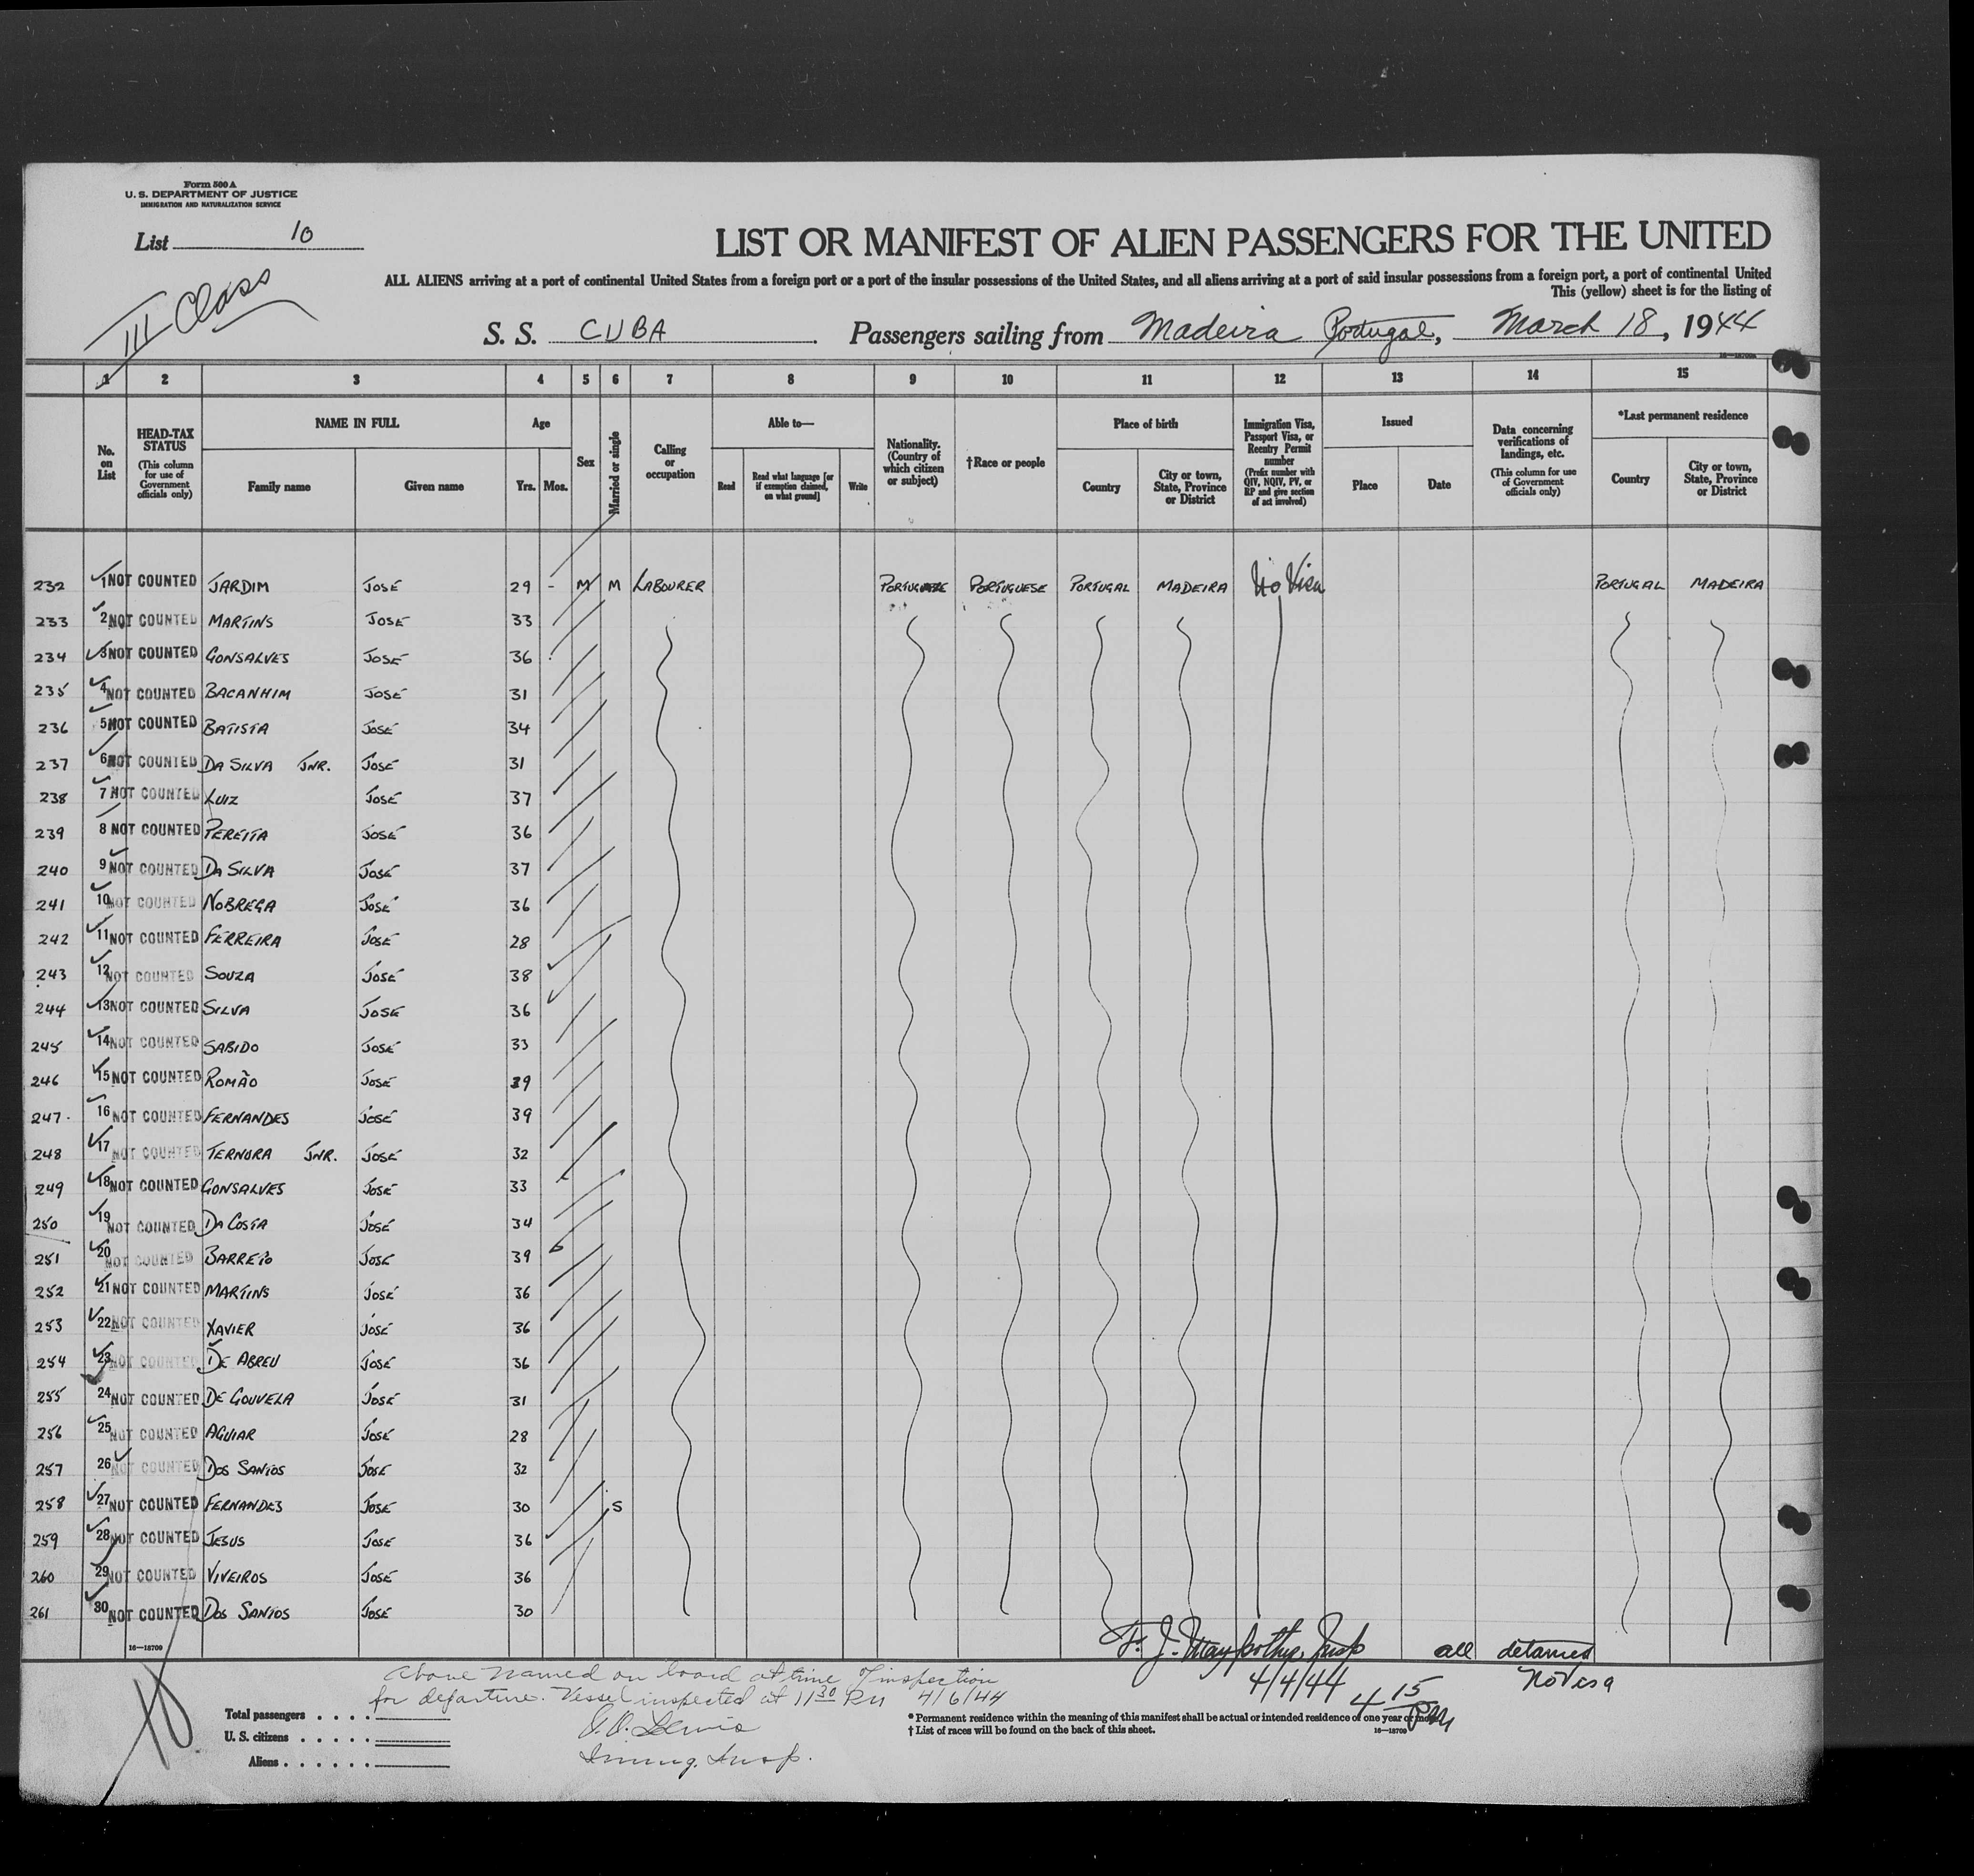 Form 500 A
U. S. DEPARTMENT OF JUSTICE
IMMIGRATION AND NATURALIZATION SERVICE
List 10
III Class
LIST OR MANIFEST OF ALIEN PASSENGERS FOR THE UNITED
ALL ALIENS arriving at a port of continental United States from a foreign port or a port of the insular possessions of the United States, and all aliens arriving at a port of said insular possessions from a foreign port, a port of continental United
This (yellow) sheet is for the listing of
S. S. CUBA Passengers sailing from Madeira Portugal, March 18, 1944
1 2 3 4 5 6 7 8 9 10 11 12 13 14 15
No. on List
HEAD-TAX STATUS (This column for use of Government officials only)
NAME IN FULL
Family name Given name
Age
Yrs. Mos.
Sex
Married or single
Calling or occupation
Able to—
Read Read what language [or if exemption claimed, on what ground] Write
Nationality. (Country of which citizen or subject)
†Race or people
Place of birth
Country City or town, State, Province or District
Immigration Visa, Passport Visa, or Reentry Permit number (Prefix number with QIV, NQIV, PV, or RP and give section of act involved)
Issued
Place Date
Data concerning verifications of landings, etc. (This column for use of Government officials only)
*Last permanent residence
Country City or town, State, Province or District
232 1 NOT COUNTED JARDIM JOSÉ 29 - M M LABOURER PORTUGUESE PORTUGUESE PORTUGAL MADEIRA No Visa PORTUGAL MADEIRA
233 2 NOT COUNTED MARTINS JOSÉ 33
234 3 NOT COUNTED GONSALVES JOSÉ 36
235 4 NOT COUNTED BACANHIM JOSÉ 31
236 5 NOT COUNTED BATISTA JOSÉ 34
237 6 NOT COUNTED DA SILVA JNR. JOSÉ 31
238 7 NOT COUNTED LUIZ JOSÉ 37
239 8 NOT COUNTED PEREITA JOSÉ 36
240 9 NOT COUNTED DA SILVA JOSÉ 37
241 10 NOT COUNTED NOBREGA JOSÉ 36
242 11 NOT COUNTED FERREIRA JOSÉ 28
243 12 NOT COUNTED SOUZA JOSÉ 38
244 13 NOT COUNTED SILVA JOSÉ 36
245 14 NOT COUNTED SABIDO JOSÉ 33
246 15 NOT COUNTED ROMÃO JOSÉ 39
247 16 NOT COUNTED FERNANDES JOSÉ 39
248 17 NOT COUNTED TERNORA JNR. JOSÉ 32
249 18 NOT COUNTED GONSALVES JOSÉ 33
250 19 NOT COUNTED DA COSTA JOSÉ 34
251 20 NOT COUNTED BARRETO JOSÉ 39
252 21 NOT COUNTED MARTINS JOSÉ 36
253 22 NOT COUNTED XAVIER JOSÉ 36
254 23 NOT COUNTED DE ABREU JOSÉ 36
255 24 NOT COUNTED DE GOUVELA JOSÉ 31
256 25 NOT COUNTED AGUIAR JOSÉ 28
257 26 NOT COUNTED DOS SANTOS JOSÉ 32
258 27 NOT COUNTED FERNANDES JOSÉ 30 S
259 28 NOT COUNTED JESUS JOSÉ 36
260 29 NOT COUNTED VIVEIROS JOSÉ 36
261 30 NOT COUNTED DOS SANTOS JOSÉ 30
16—18700
F. J. Insp all detained
4/4/44 4 15 PM No Visa
above named on board at time of inspection
for departure. Vessel inspected at 11 30 PM 4/6/44
Lewis
Immig. Insp.
10
Total passengers
U. S. citizens
Aliens
* Permanent residence within the meaning of this manifest shall be actual or intended residence of one year or more.
† List of races will be found on the back of this sheet.
16—18700